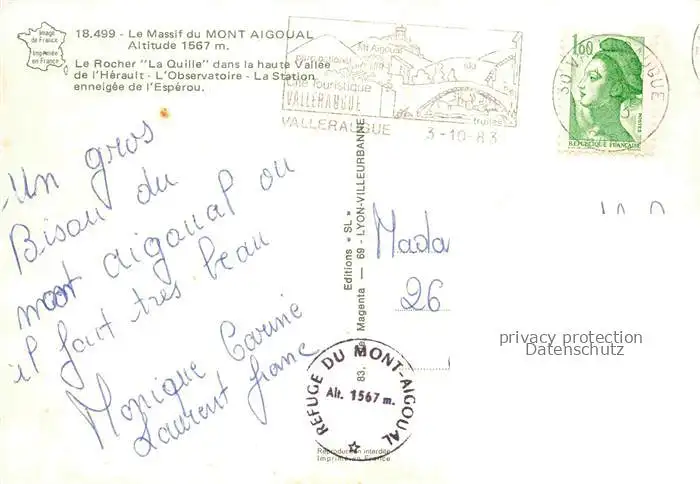 Image
de France
Imprimée
en France
18.499 - Le Massif du MONT AIGOUAL
Altitude 1567 m.
Le Rocher "La Quille" dans la haute Vallée
de l'Hérault - L'Observatoire - La Station
enneigée de l'Espérou.
Mt Aigoual
Parc national
Cité Touristique
VALLERAUGUE
truites
VALLERAUGUE
3-10-83
1,60
POSTES
REPUBLIQUE FRANÇAISE
Un gros
Bisou du
mont aigoual ou
il fait très beau
Monique Carine
Laurent franc
Editions « SL »
Magenta — 69 - LYON-VILLEURBANNE
83,
Mada
26
privacy protection
Datenschutz
REFUGE DU MONT-AIGOUAL
Alt. 1567 m.
Reproduction interdite
Imprimé en France